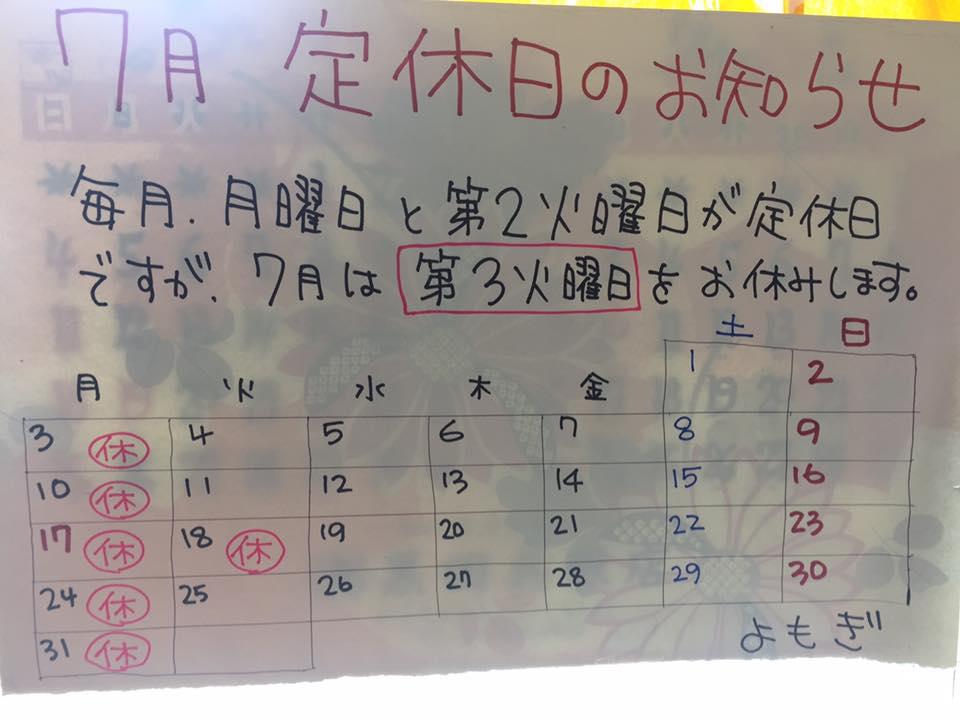 7月 定休日のお知らせ
毎月.月曜日と第2火曜日が定休日
ですが、7月は第3火曜日をお休みします。
月 火 水 木 金 土 日
1 2
3 休 4 5 6 7 8 9
10 休 11 12 13 14 15 16
17 休 18 休 19 20 21 22 23
24 休 25 26 27 28 29 30
31 休
よもぎ